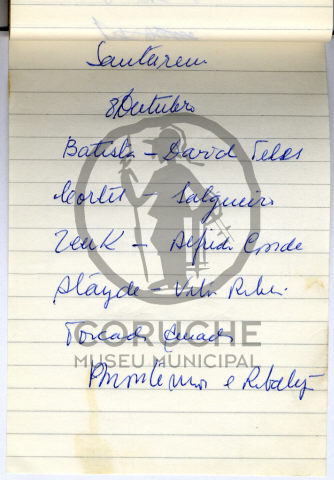 Santarem
8 Outubro
Batista - David Teles
Cortes - Salgueiro
Zenk - Alfredo Conde
Atayde - Vitor Ribei
Forcado Amado
P Montemor e Ribatejo
CORUCHE
MUSEU MUNICIPAL